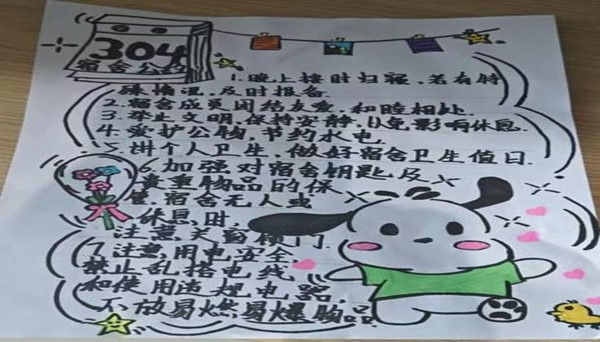 304
宿舍公约
1.晚上按时归寝,若有特
殊情况,及时报备.
2.宿舍成员团结友爱,和睦相处.
3.举止文明,保持安静,以免影响休息.
4.爱护公物,节约水电.
5.讲个人卫生,做好宿舍卫生值日.
6.加强对宿舍钥匙及
贵重物品的保
管,宿舍无人或
休息时,
注意关窗锁门.
7.注意用电安全,
禁止乱搭电线
和使用违规电器,
不放易燃易爆物品.